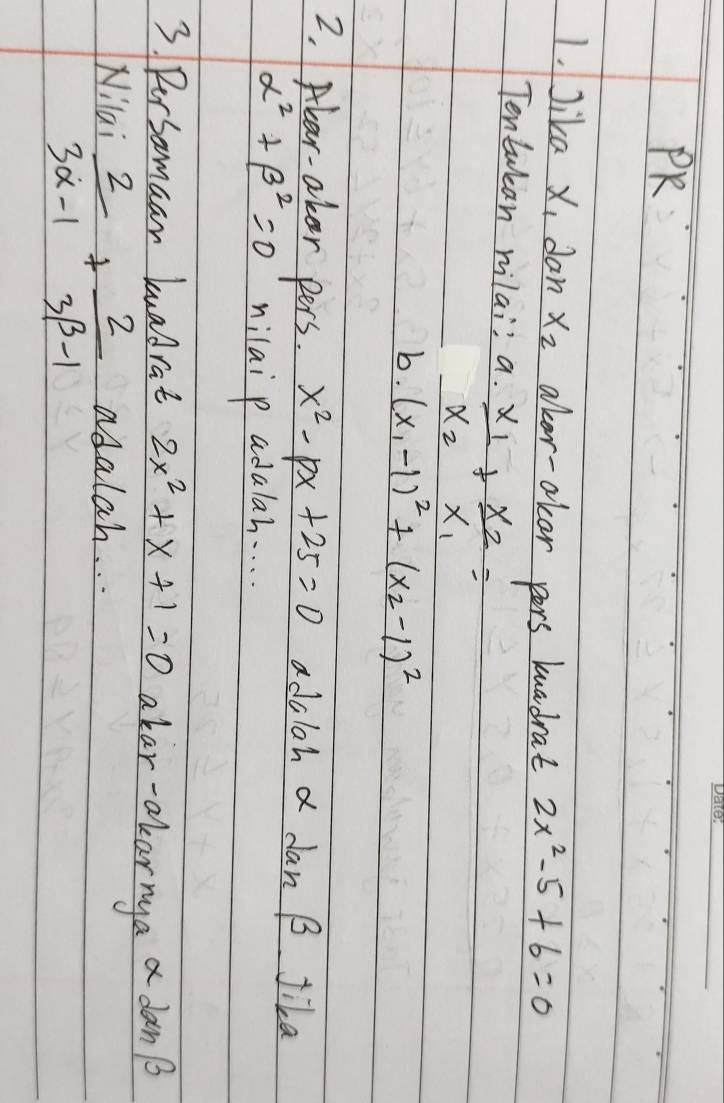 Date:
PR
1. Jika x₁ dan x₂ akar-akar pers kuadrat 2x² - 5 + 6 = 0
Tentukan nilai: a. x₁/x₂ + x₂/x₁ =
b. (x₁ - 1)² + (x₂ - 1)²
2. Akar-akar pers. x² - px + 25 = 0 adalah α dan β Jika
α² + β² = 0 nilai p adalah....
3. Persamaan kuadrat 2x² + x + 1 = 0 akar-akarnya α dan β
Nilai 2/(3α - 1) + 2/(3β - 1) adalah...